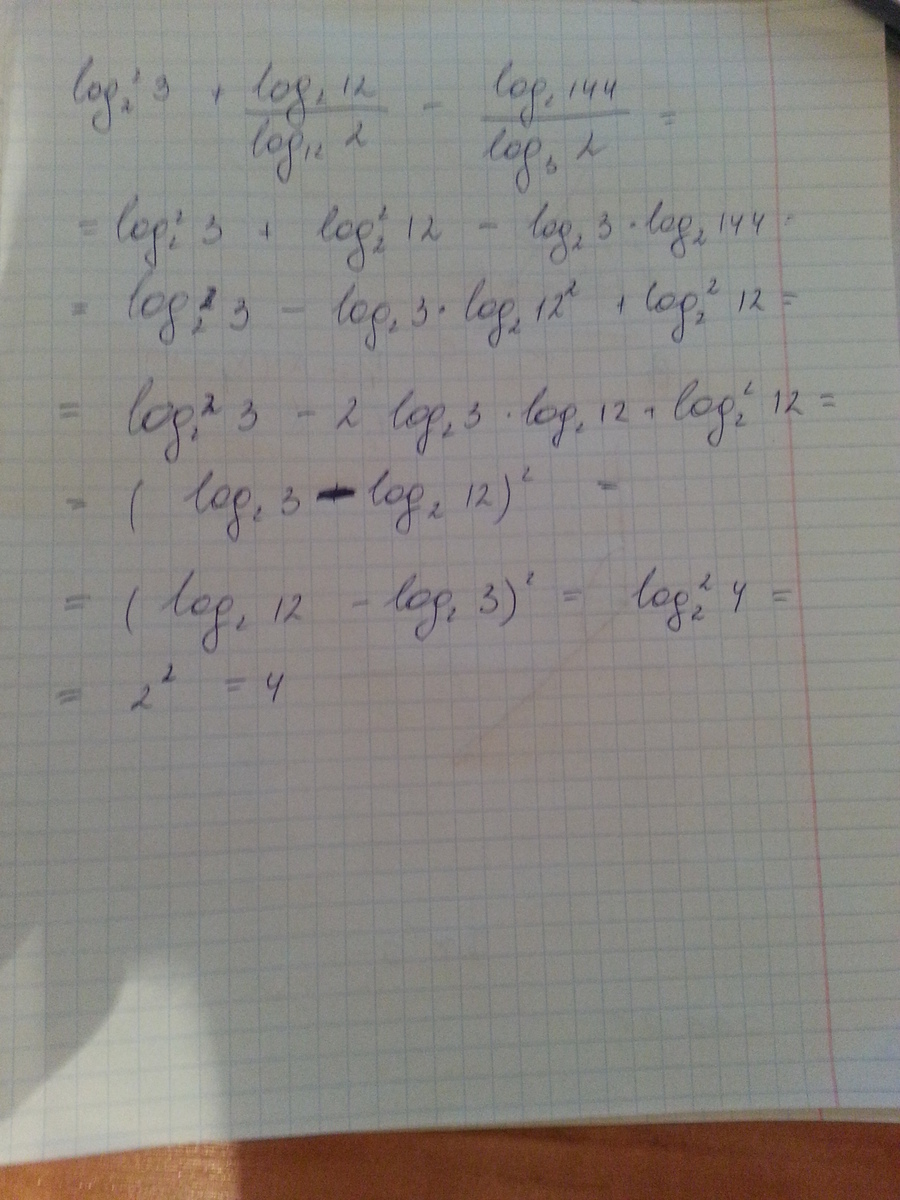 log₂² 3 + log₂ 12 / log₁₂ 2 − log₂ 144 / log₃ 2 =
= log₂² 3 + log₂² 12 − log₂ 3 · log₂ 144 =
= log₂² 3 − log₂ 3 · log₂ 12² + log₂² 12 =
= log₂² 3 − 2 log₂ 3 · log₂ 12 + log₂² 12 =
= ( log₂ 3 − log₂ 12)² =
= ( log₂ 12 − log₂ 3)² = log₂² 4 =
= 2² = 4